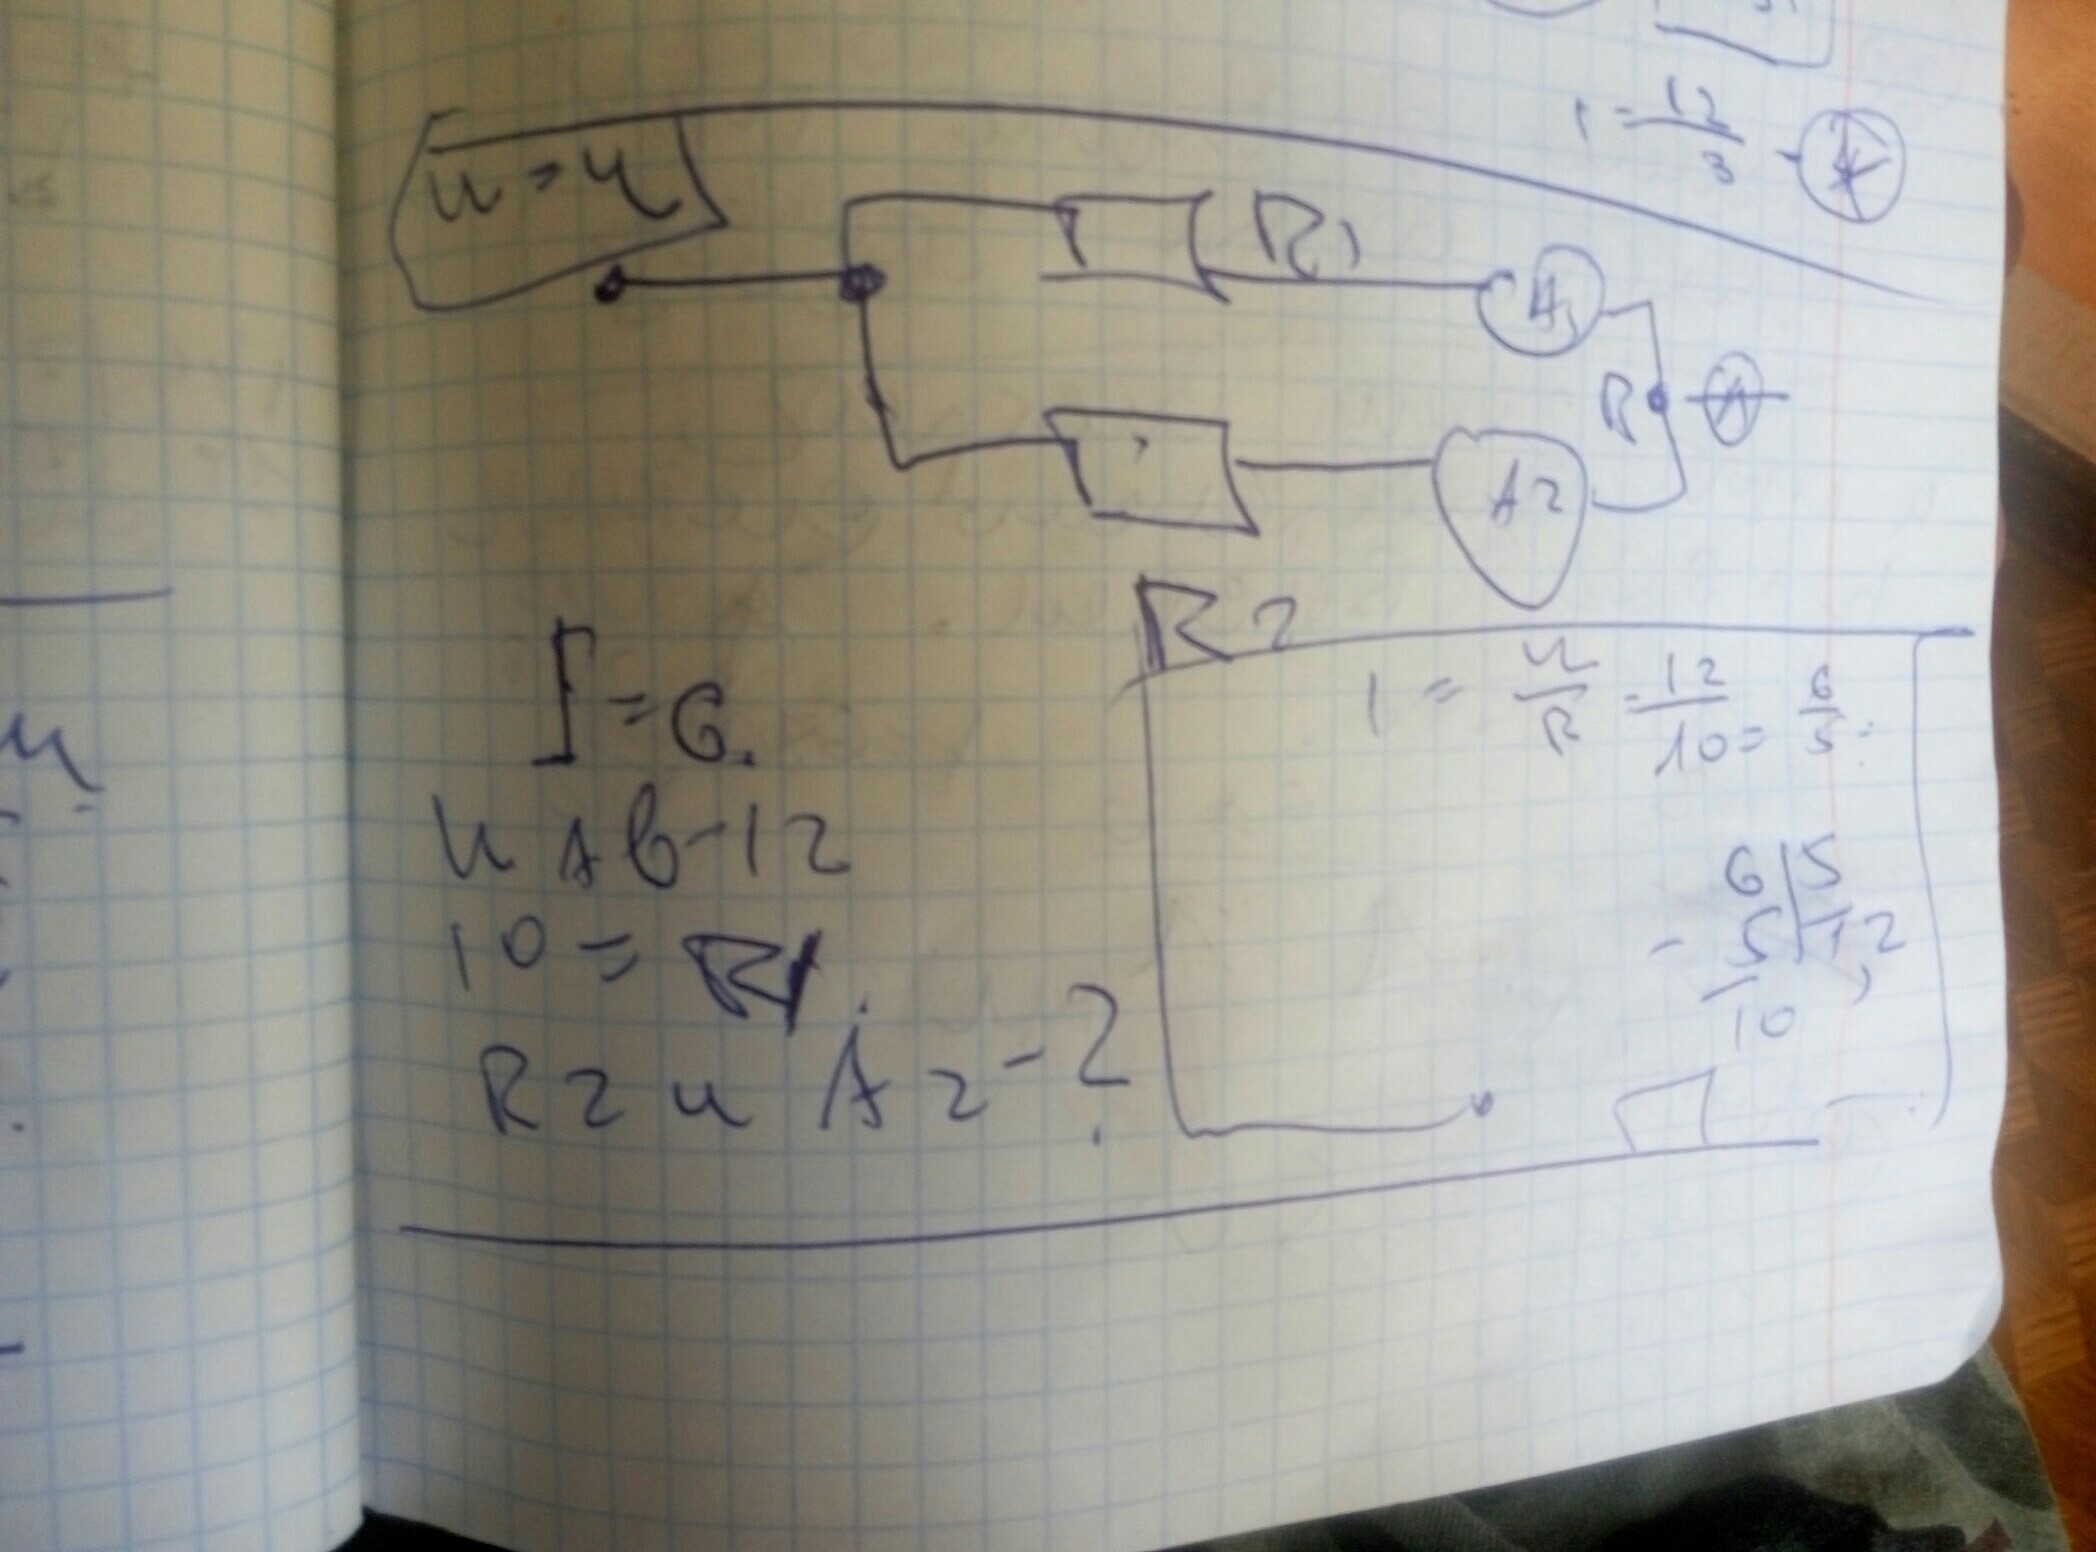 1 = 12/8
и = 4
R1
A1
B
A2
R2
I = 6.
U AB - 12
10 = R1.
R2 и A2 - ?
1 = U/R = 12/10 = 6/5
6 | 5
- 5 | 1,2
10